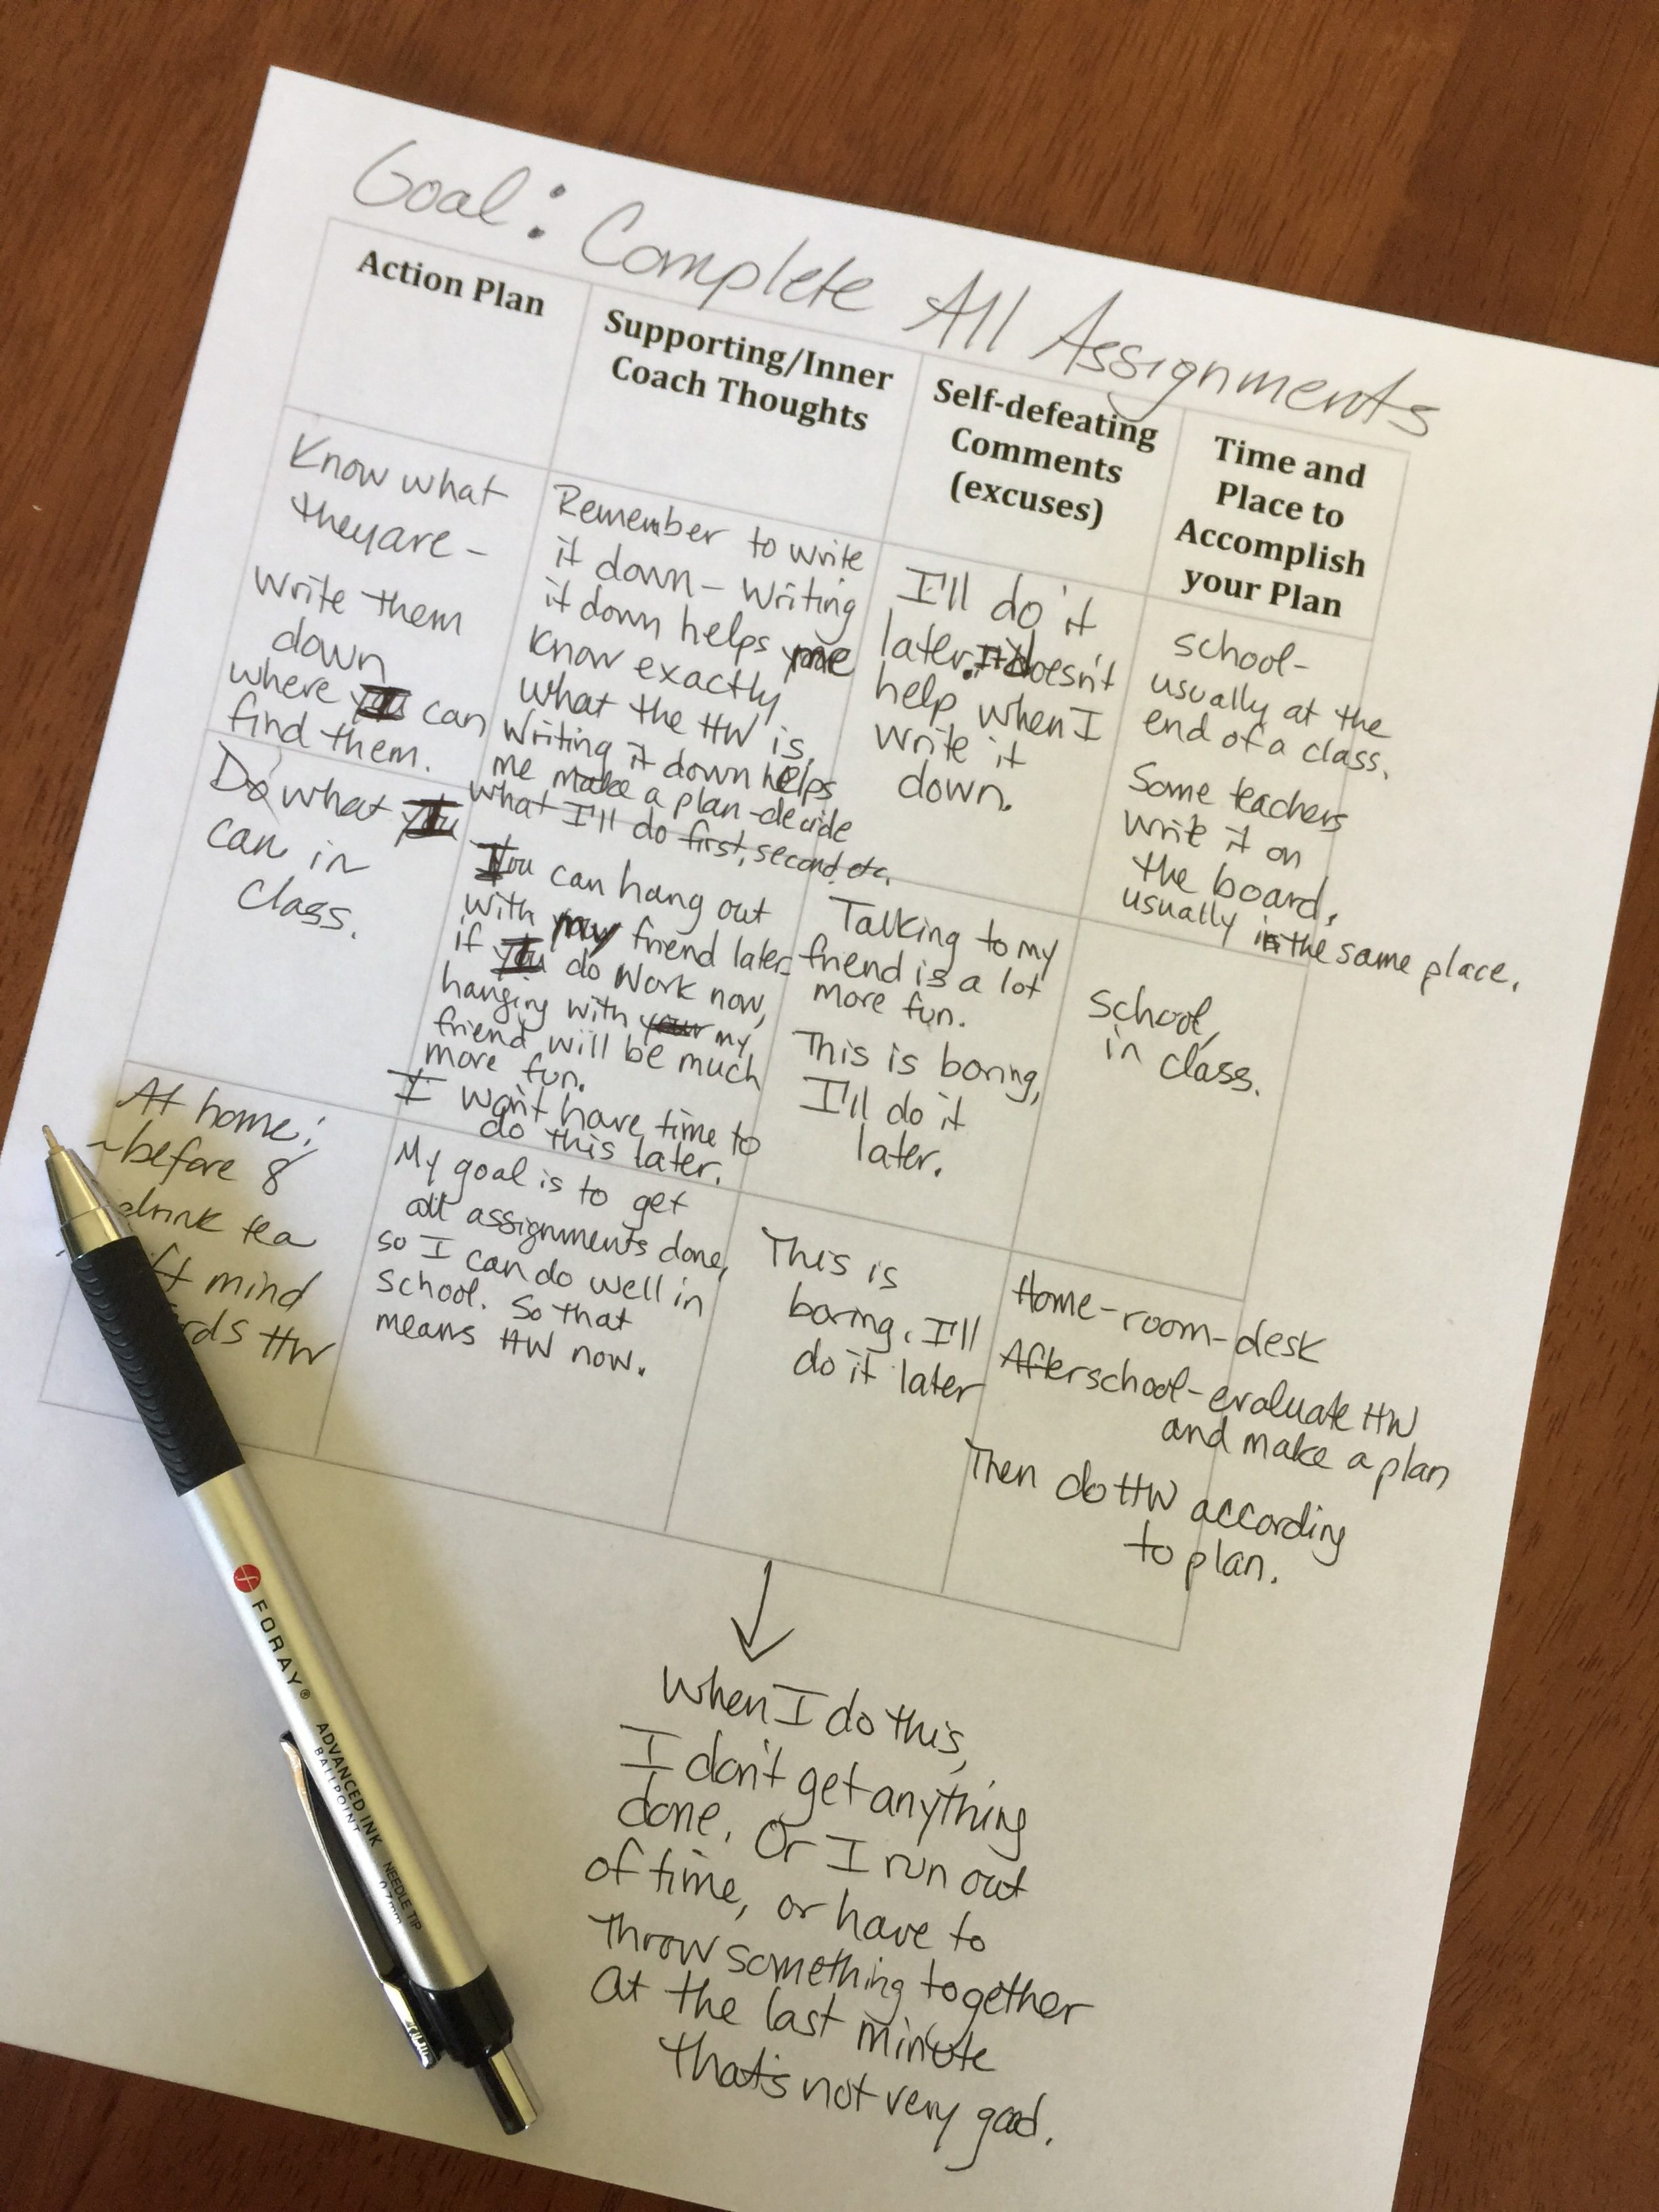 Goal: Complete All Assignments
Action Plan
Supporting/Inner
Coach Thoughts
Self-defeating
Comments
(excuses)
Time and
Place to
Accomplish
your Plan
Know what
they are -
Write them
down
where I can
find them.
Remember to write
it down - Writing
it down helps me
know exactly
what the HW is.
Writing it down helps
me make a plan - decide
what I'll do first, second, etc.
I'll do it
later. It doesn't
help when I
write it
down.
school -
usually at the
end of a class.
Some teachers
write it on
the board,
usually in the same place.
Do what I
can in
class.
I can hang out
with my friend later
if I do work now,
hanging with my
friend will be much
more fun.
I won't have time to
do this later.
Talking to my
friend is a lot
more fun.
This is boring,
I'll do it
later.
school,
in class.
At home:
~before 8
drink tea
mind
HW
My goal is to get
all assignments done,
so I can do well in
school. So that
means HW now.
This is
boring. I'll
do it later
Home-room-desk
After school - evaluate HW
and make a plan
Then do HW according
to plan.
When I do this,
I don't get anything
done. Or I run out
of time, or have to
throw something together
at the last minute
that's not very good.
FORAY®
ADVANCED INK
BALLPOINT
NEEDLE TIP